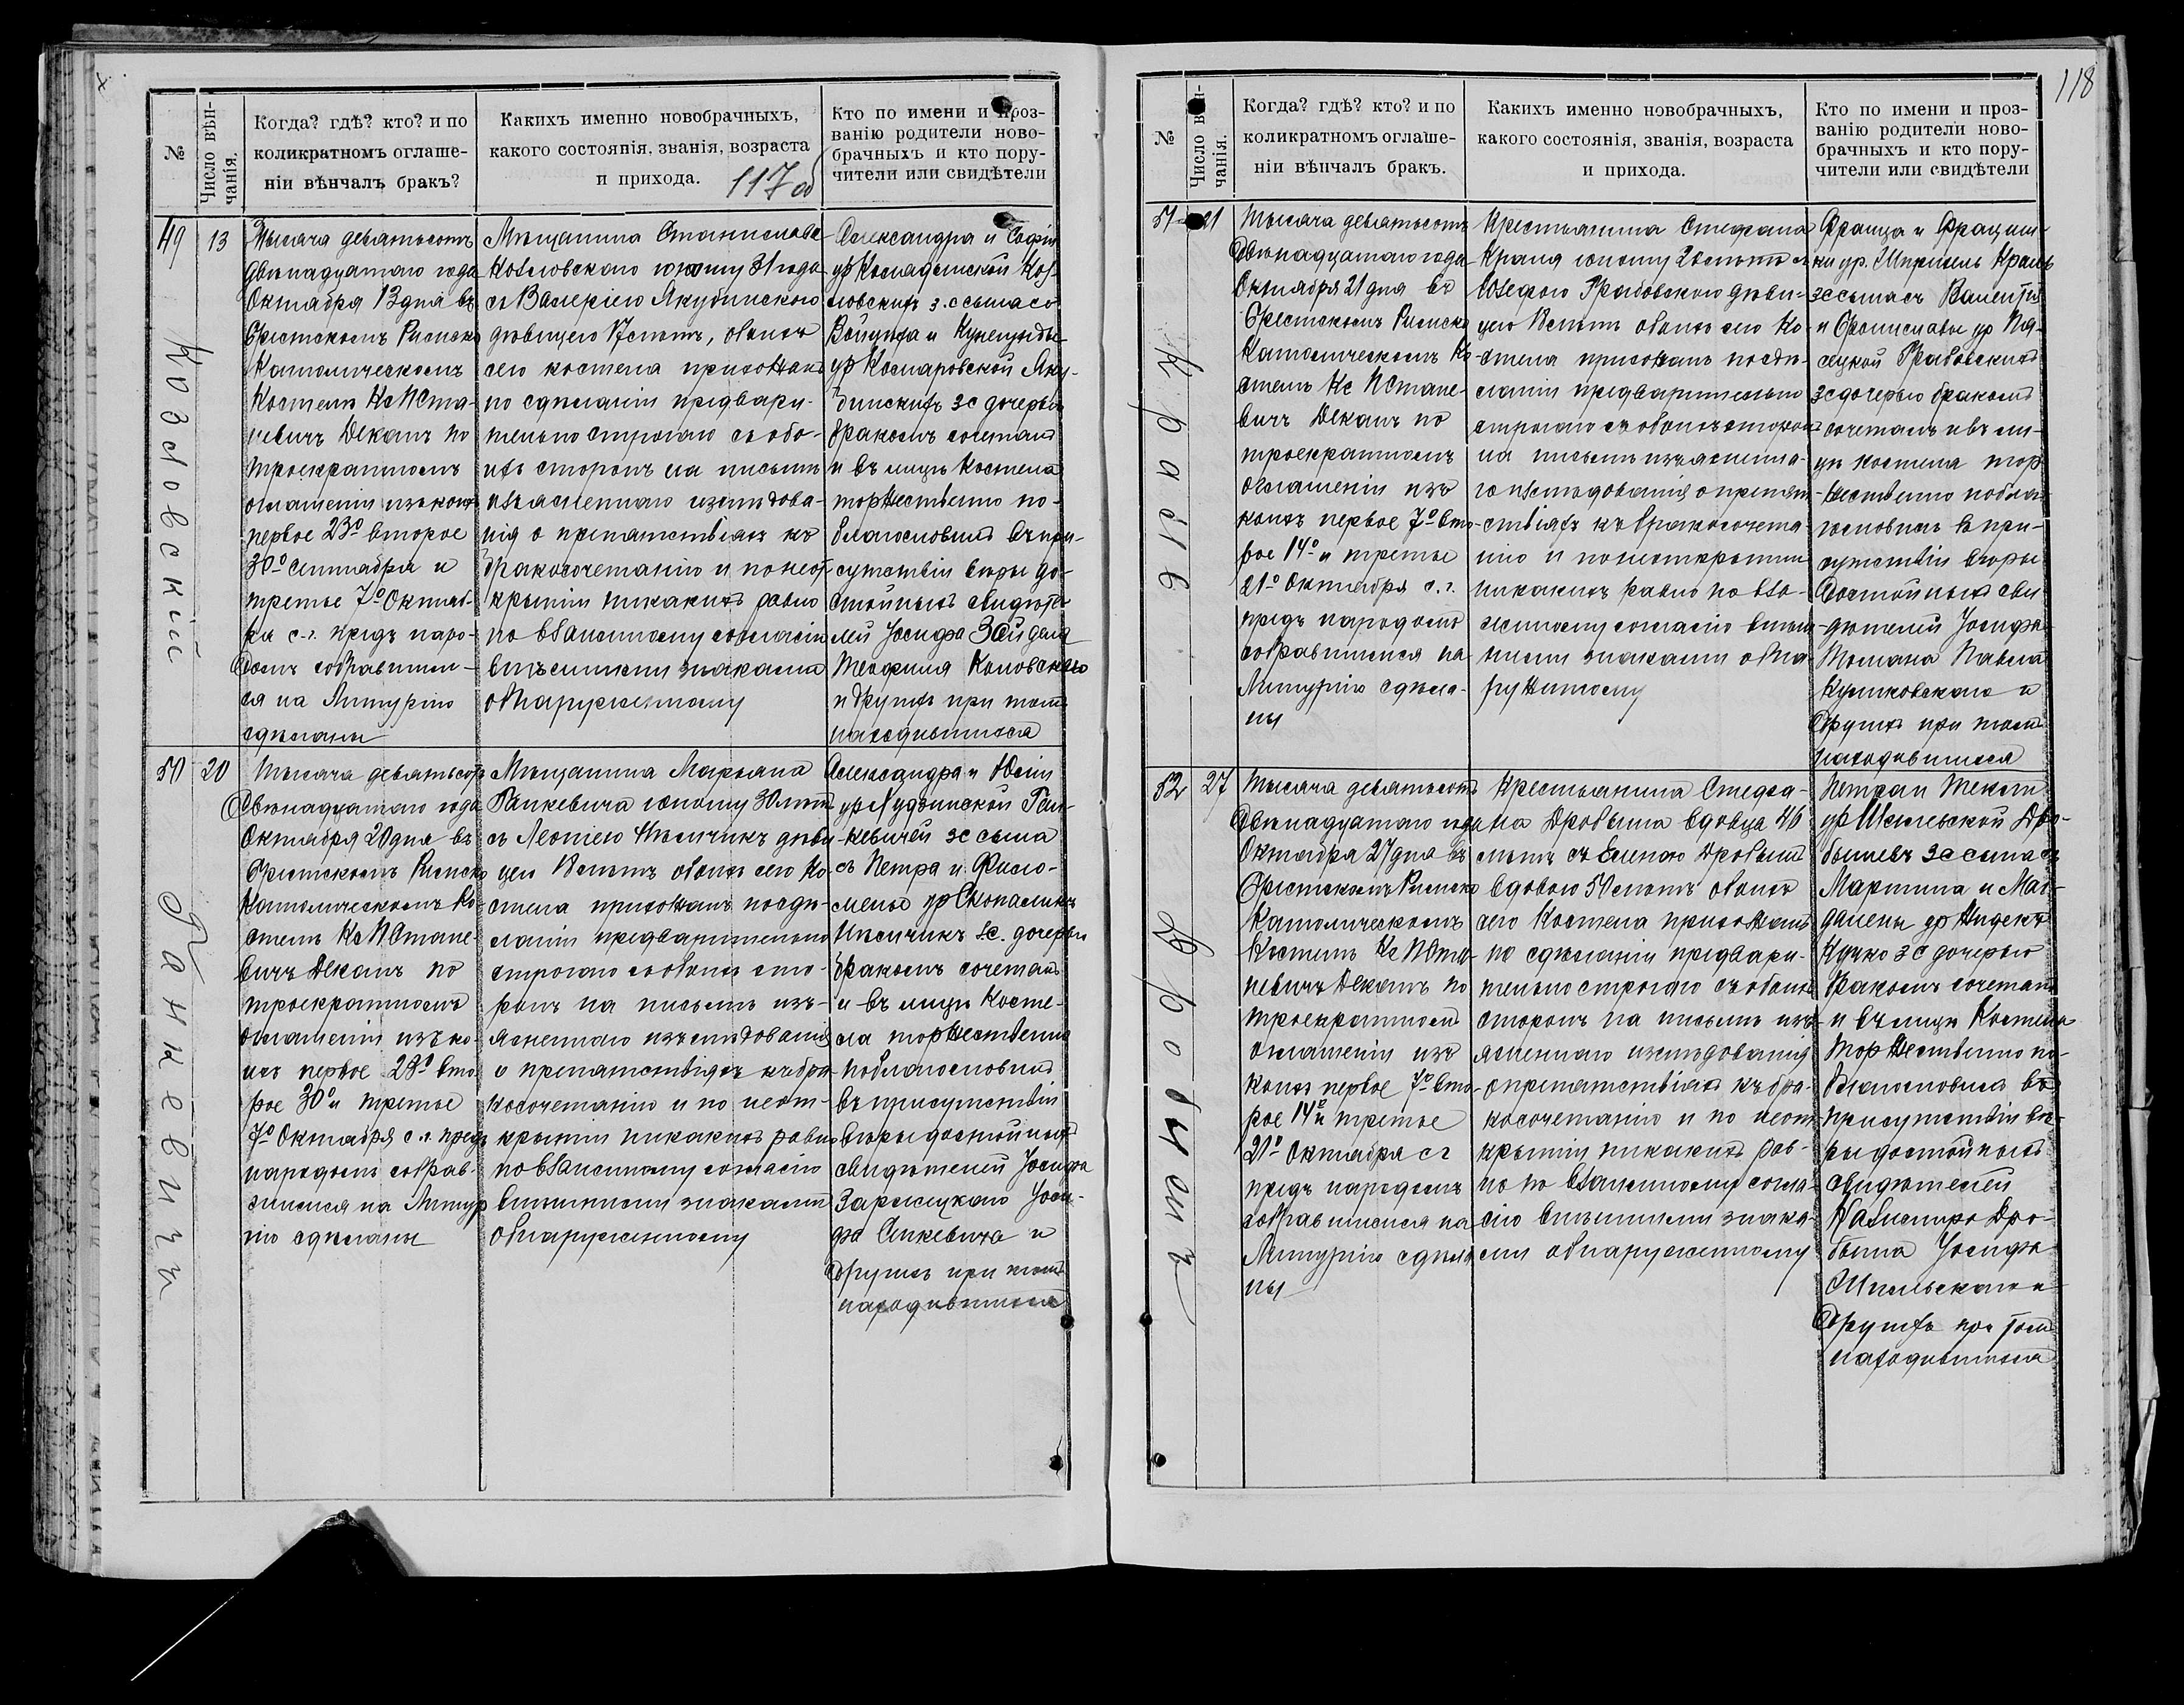 117 об
№
Число вѣн-
чанія.
Когда? гдѣ? кто? и по
коликратномъ оглаше-
ніи вѣнчалъ бракъ?
Какихъ именно новобрачныхъ,
какого состоянія, званія, возраста
и прихода.
Кто по имени и проз-
ванію родители ново-
брачныхъ и кто пору-
чители или свидѣтели
49
13
Козловскій
Тысяча девятьсотъ
двѣнадцатаго года
Октября 13 дня въ
Брестскомъ Римско
Католическомъ
Костелѣ Кс
Деканъ по
троекратномъ
оглашеніи изъ коихъ
первое 23º второе
30º Сентября и
третье 7º Октяб-
ря с.г. предъ наро-
домъ собравшим-
ся на Литургію
сдѣланы
Мѣщанина Станислава
Козловскаго юношу 31 года
съ Валеріею Якубинскою
дѣвицею 17 лѣтъ, обоихъ
сего костела прихожанъ
по сдѣланіи предвари-
тельно строгаго съ обо-
ихъ сторонъ на письмѣ
изъясненнаго изслѣдова-
нія о препятствіяхъ къ
бракосочетанію и по неот-
крытіи никакихъ равно
по взаимному согласію
внѣшними знаками
обнаруженному
Александра и Софіи
ур Коз-
ловскихъ з. с сына со
и Кунегунды
ур Комаровской Яку-
бинскихъ зс дочерью
бракомъ сочеталъ
и въ лицѣ Костела
торжественно по-
благословилъ въ при-
сутствіи вѣры до-
стойныхъ свидѣте-
лей Іосифа Зайделя
Теофиля
и другихъ при томъ
находившихся
50
20
Ранкевичъ
Тысяча девятьсотъ
двѣнадцатаго года
Октября 20 дня въ
Брестскомъ Римско
Католическомъ Ко-
стелѣ Кс
Деканъ по
троекратномъ
оглашеніи изъ ко-
ихъ первое 23º вто-
рое 30º и третье
7º Октября с.г. предъ
народомъ собрав-
шимися на Литур
гію сдѣланы
Мѣщанина Марьяна
Ранкевича юношу 30 лѣтъ
съ Леоніею дѣви
цею лѣтъ обоихъ сего Ко-
стела прихожанъ по сдѣ-
ланіи предварительно
строгаго съ обоихъ сто-
ронъ на письмѣ изъ-
ясненнаго изслѣдованія
о препятствіяхъ къ бра-
косочетанію и по неот-
крытіи никакихъ равно
по взаимному согласію
внѣшними знаками
обнаруженному
Александра и Юліи
ур Ран-
кевичей зс сына
съ Петра и Фило-
мены ур
зс. дочерью
бракомъ сочеталъ
и въ лицѣ Косте-
ла торжественно
поблагословилъ
въ присутствіи
вѣры достойныхъ
свидѣтелей Іосифа
Зарѣцкаго Іоси-
фа и
другихъ при томъ
находившихся
118
№
Число вѣн-
чанія.
Когда? гдѣ? кто? и по
коликратномъ оглаше-
ніи вѣнчалъ бракъ.
Какихъ именно новобрачныхъ,
какого состоянія, званія, возраста
и прихода.
Кто по имени и проз-
ванію родители ново-
брачныхъ и кто пору-
чители или свидѣтели
51
21
Краль
Тысяча девятьсотъ
двѣнадцатаго года
Октября 21 дня въ
Брестскомъ Римско
Католическомъ Ко-
стелѣ Кс
Деканъ по
троекратномъ
оглашеніи изъ
коихъ первое 7º вто-
рое 14º и третье
21º Октября с.г.
предъ народомъ
собравшимися на
Литургію сдѣла-
ны
Крестьянина Стефана
Краля юношу лѣтъ съ
Юзефою Грабовскою дѣви-
цею лѣтъ обоихъ сего Ко-
стела прихожанъ по сдѣ-
ланіи предварительно
строгаго съ обоихъ сторонъ
на письмѣ изъясненна-
го изслѣдованія о препят-
ствіяхъ къ бракосочета-
нію и по неоткрытіи
никакихъ равно по вза-
имному согласію внѣш-
ними знаками обна-
руженному
Франца и Францишки
ур. Краль
зс сына съ Валентія
и Брониславы ур
Грабовскихъ
зс дочерью бракомъ
сочеталъ и въ ли-
цѣ костела тор-
жественно побла-
гословилъ въ при-
сутствіи вѣры
достойныхъ сви
дѣтелей Іосифа
Томана Павла
Куликовскаго и
другихъ при томъ
находившихся
52
27
Дробышъ
Тысяча девятьсотъ
двѣнадцатаго года
Октября 27 дня въ
Брестскомъ Римско
Католическомъ
Костелѣ Кс
Деканъ по
троекратномъ
оглашеніи изъ
коихъ первое 7º вто-
рое 14º и третье
21º Октября с г
предъ народомъ
собравшимися на
Литургію сдѣла
ны
Крестьянина Стефа-
на Дробыша вдовца 46
лѣтъ съ Еленою Дробышъ
вдовою лѣтъ обоихъ
сего Костела прихожанъ
по сдѣланіи предвари-
тельно строгаго съ обоихъ
сторонъ на письмѣ изъ-
ясненнаго изслѣдованія
о препятствіяхъ къ бра-
косочетанію и по неот
крытіи никакихъ рав-
но по взаимному согла-
сію внѣшними знака-
ми обнаруженному
Петра и Теклі
ур Дро-
бышевъ зс сына съ
Мартина и Маг-
далены ур
зс дочерью
бракомъ сочеталъ
и въ лицѣ Костела
торжественно по-
благословилъ въ
присутствіи вѣ-
ры достойныхъ
свидѣтелей
Казимира Дро-
быша Іосифа
и
другихъ при томъ
находившихся